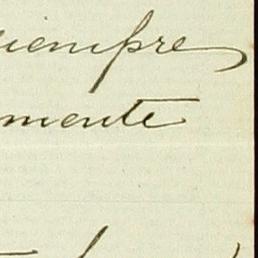 siempre
mente